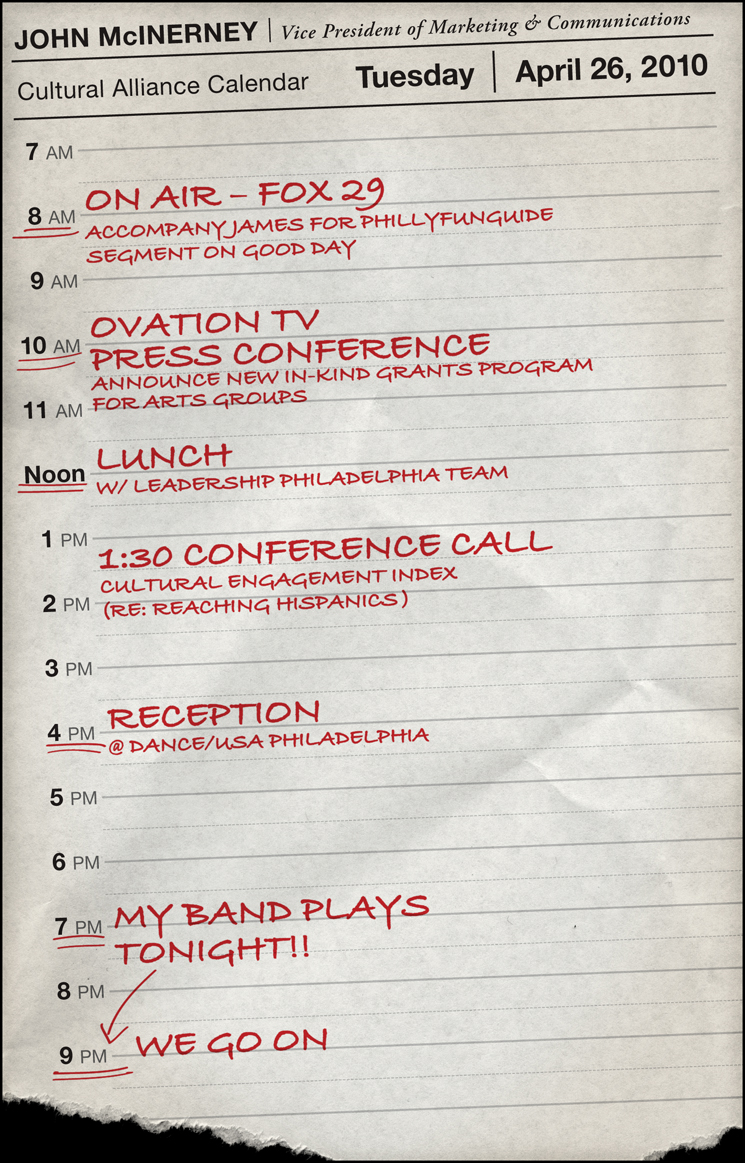 JOHN McINERNEY | Vice President of Marketing & Communications
Cultural Alliance Calendar Tuesday | April 26, 2010
7 AM
ON AIR – FOX 29
8 AM
ACCOMPANY JAMES FOR PHILLYFUNGUIDE
SEGMENT ON GOOD DAY
9 AM
OVATION TV
10 AM
PRESS CONFERENCE
ANNOUNCE NEW IN-KIND GRANTS PROGRAM
11 AM
FOR ARTS GROUPS
LUNCH
Noon
W/ LEADERSHIP PHILADELPHIA TEAM
1 PM
1:30 CONFERENCE CALL
CULTURAL ENGAGEMENT INDEX
2 PM
(RE: REACHING HISPANICS)
3 PM
RECEPTION
4 PM
@ DANCE/USA PHILADELPHIA
5 PM
6 PM
7 PM
MY BAND PLAYS
TONIGHT!!
8 PM
9 PM
WE GO ON